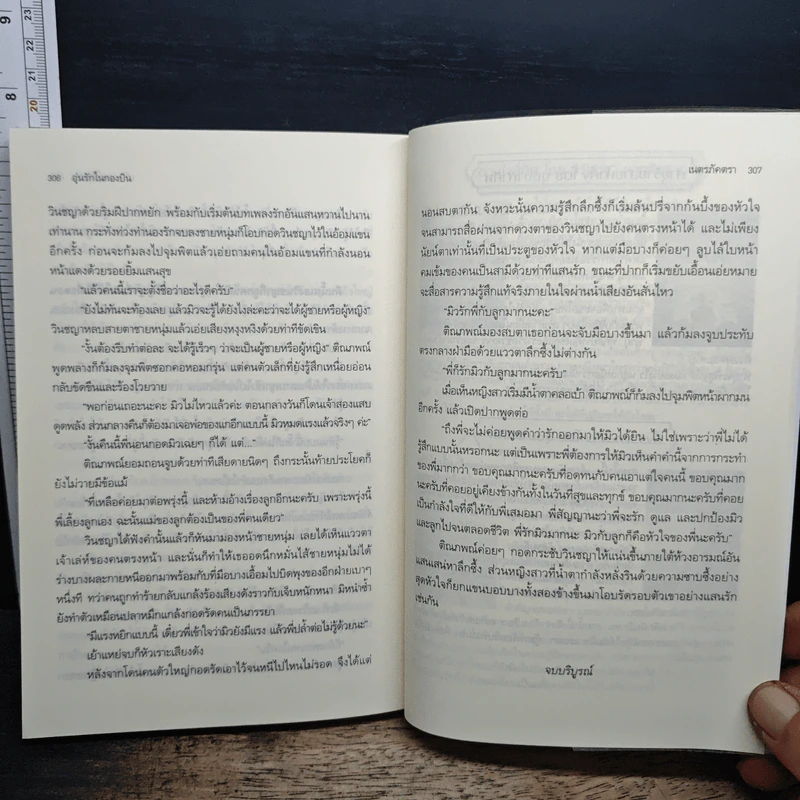 9
8
23
22
21
20
306 อุ่นรักในกองบิน
วินชญาด้วยริมฝีปากหยัก พร้อมกับเริ่มต้นบทเพลงรักอันแสนหวานไปนาน
เท่านาน กระทั่งท่วงทำนองรักจบลงชายหนุ่มก็โอบกอดวินชญาไว้ในอ้อมแขน
อีกครั้ง ก่อนจะก้มลงไปจุมพิตแล้วเอ่ยถามคนในอ้อมแขนที่กำลังนอน
หน้าแดงด้วยรอยยิ้มแสนสุข
“แล้วคนนี้เราจะตั้งชื่อว่าอะไรดีครับ”
“ยังไม่ทันจะท้องเลย แล้วมิวจะรู้ได้ยังไงล่ะคะว่าจะได้ผู้ชายหรือผู้หญิง”
วินชญาหลบสายตาชายหนุ่มแล้วเอ่ยเสียงหงุงหงิงด้วยท่าทีขัดเขิน
“งั้นต้องรีบทำต่อละ จะได้รู้เร็วๆ ว่าจะเป็นผู้ชายหรือผู้หญิง” ติณภพณ์
พูดพลางก็ก้มลงจุมพิตซอกคอหอมกรุ่น แต่คนตัวเล็กที่ยังรู้สึกเหนื่อยอ่อน
กลับขัดขืนและร้องโวยวาย
“พอก่อนเถอะนะคะ มิวไม่ไหวแล้วค่ะ ตอนกลางวันก็โดนเจ้าสองแสบ
ดูดพลัง ส่วนกลางคืนก็ต้องมาเจอพ่อของแกอีกแบบนี้ มิวหมดแรงแล้วจริงๆ ค่ะ”
“งั้นคืนนี้พี่นอนกอดมิวเฉยๆ ก็ได้ แต่...”
ติณภพณ์ยอมถอนจูบด้วยท่าทีเสียดายนิดๆ ถึงกระนั้นท้ายประโยคก็
ยังไม่วายมีข้อแม้
“ที่เหลือค่อยมาต่อพรุ่งนี้ และห้ามอ้างเรื่องลูกอีกนะครับ เพราะพรุ่งนี้
พี่เลี้ยงลูกเอง ฉะนั้นแม่ของลูกต้องเป็นของพี่คนเดียว”
วินชญาได้ฟังคำนั้นแล้วก็หันมามองหน้าชายหนุ่ม เลยได้เห็นแววตา
เจ้าเล่ห์ของคนตรงหน้า และนั่นก็ทำให้เธออดนึกหมั่นไส้ชายหนุ่มไม่ได้
ร่างบางผละกายหนีออกมาพร้อมกับที่มือบางเอื้อมไปบิดพุงของอีกฝ่ายเบาๆ
หนึ่งที ทว่าคนถูกทำร้ายกลับแกล้งร้องเสียงดังราวกับเจ็บหนักหนา มิหนำซ้ำ
ยังทำตัวเหมือนปลาหมึกแกล้งกอดรัดคนเป็นภรรยา
“มีแรงหยิกแบบนี้ เดี๋ยวพี่เข้าใจว่ามิวยังมีแรง แล้วพี่ปล้ำต่อไม่รู้ด้วยนะ”
เย้าแหย่จบก็หัวเราะเสียงดัง
หลังจากโดนคนตัวใหญ่กอดรัดเอาไว้จนหนีไปไหนไม่รอด จึงได้แต่
เนตรภัคตรา 307
นอนสบตากัน จังหวะนั้นความรู้สึกลึกซึ้งก็เริ่มล้นปรี่จากก้นบึ้งของหัวใจ
จนสามารถสื่อผ่านจากดวงตาของวินชญาไปยังคนตรงหน้าได้ และไม่เพียง
นัยน์ตาเท่านั้นที่เป็นประตูของหัวใจ หากแต่มือบางก็ค่อยๆ ลูบไล้ใบหน้า
คมเข้มของคนเป็นสามีด้วยท่าทีแสนรัก ขณะที่ปากก็เริ่มขยับเอื้อนเอ่ยหมาย
จะสื่อสารความรู้สึกแท้จริงภายในใจผ่านน้ำเสียงอันสั่นไหว
“มิวรักพี่กับลูกมากนะคะ”
ติณภพณ์มองสบตาเธอก่อนจะจับมือบางขึ้นมา แล้วก้มลงจูบประทับ
ตรงกลางฝ่ามือด้วยแววตาลึกซึ้งไม่ต่างกัน
“พี่ก็รักมิวกับลูกมากนะครับ”
เมื่อเห็นหญิงสาวเริ่มมีน้ำตาคลอเบ้า ติณภพณ์ก็ก้มลงไปจุมพิตหน้าผากมน
อีกครั้ง แล้วเปิดปากพูดต่อ
“ถึงพี่จะไม่ค่อยพูดคำว่ารักออกมาให้มิวได้ยิน ไม่ใช่เพราะว่าพี่ไม่ได้
รู้สึกแบบนั้นหรอกนะ แต่เป็นเพราะพี่ต้องการให้มิวเห็นค่าคำนี้จากการกระทำ
ของพี่มากกว่า ขอบคุณมากนะครับที่อดทนกับคนเอาแต่ใจคนนี้ ขอบคุณมาก
นะครับที่คอยอยู่เคียงข้างกันทั้งในวันที่สุขและทุกข์ ขอบคุณมากนะครับที่คอย
เป็นกำลังใจที่ดีให้กับพี่เสมอมา พี่สัญญานะว่าพี่จะรัก ดูแล และปกป้องมิว
และลูกไปจนตลอดชีวิต พี่รักมิวมากนะ มิวกับลูกก็คือหัวใจของพี่นะครับ”
ติณภพณ์ค่อยๆ กอดกระชับวินชญาให้แน่นขึ้นภายใต้ห้วงอารมณ์อัน
แสนเสน่หาลึกซึ้ง ส่วนหญิงสาวที่น้ำตากำลังหลั่งรินด้วยความซาบซึ้งอย่าง
สุดหัวใจก็ยกแขนบอบบางทั้งสองข้างขึ้นมาโอบรัดรอบตัวเขาอย่างแสนรัก
เช่นกัน
จบบริบูรณ์